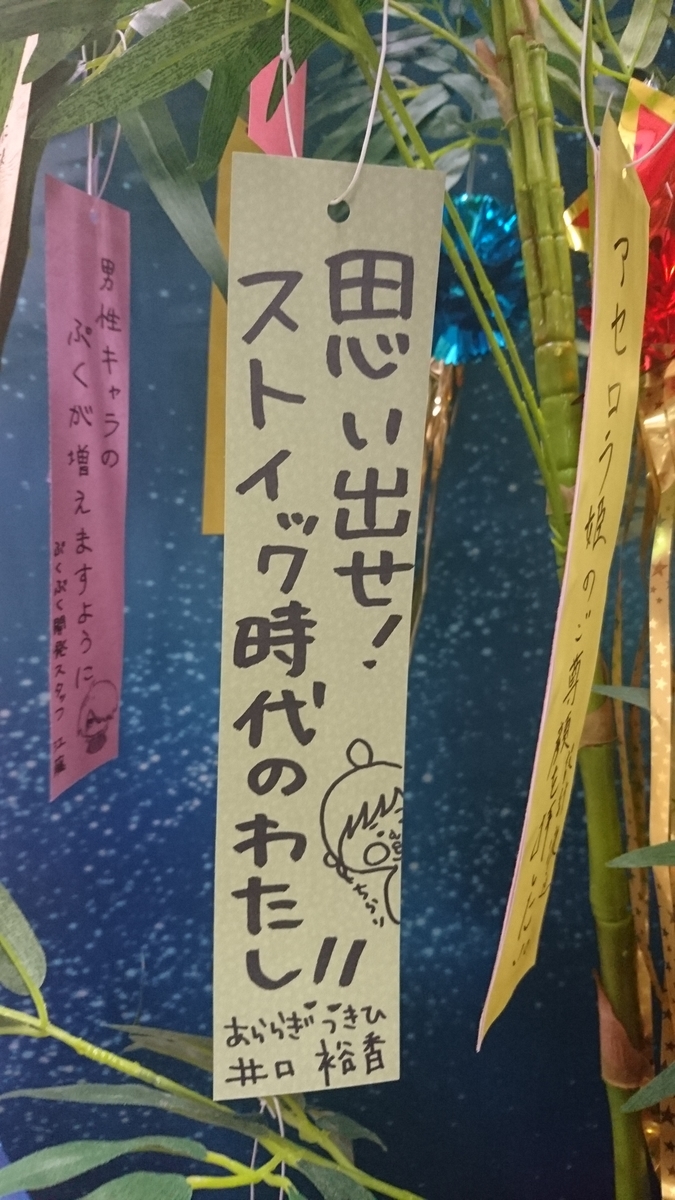 アセロラ姫のご尊顔
思い出せ!
ストイック時代のわたし!!
ちらり
あららぎ♥つきひ
井口 裕香
男性キャラの
ぷくが増えますように
ぷくぷく開発スタッフ